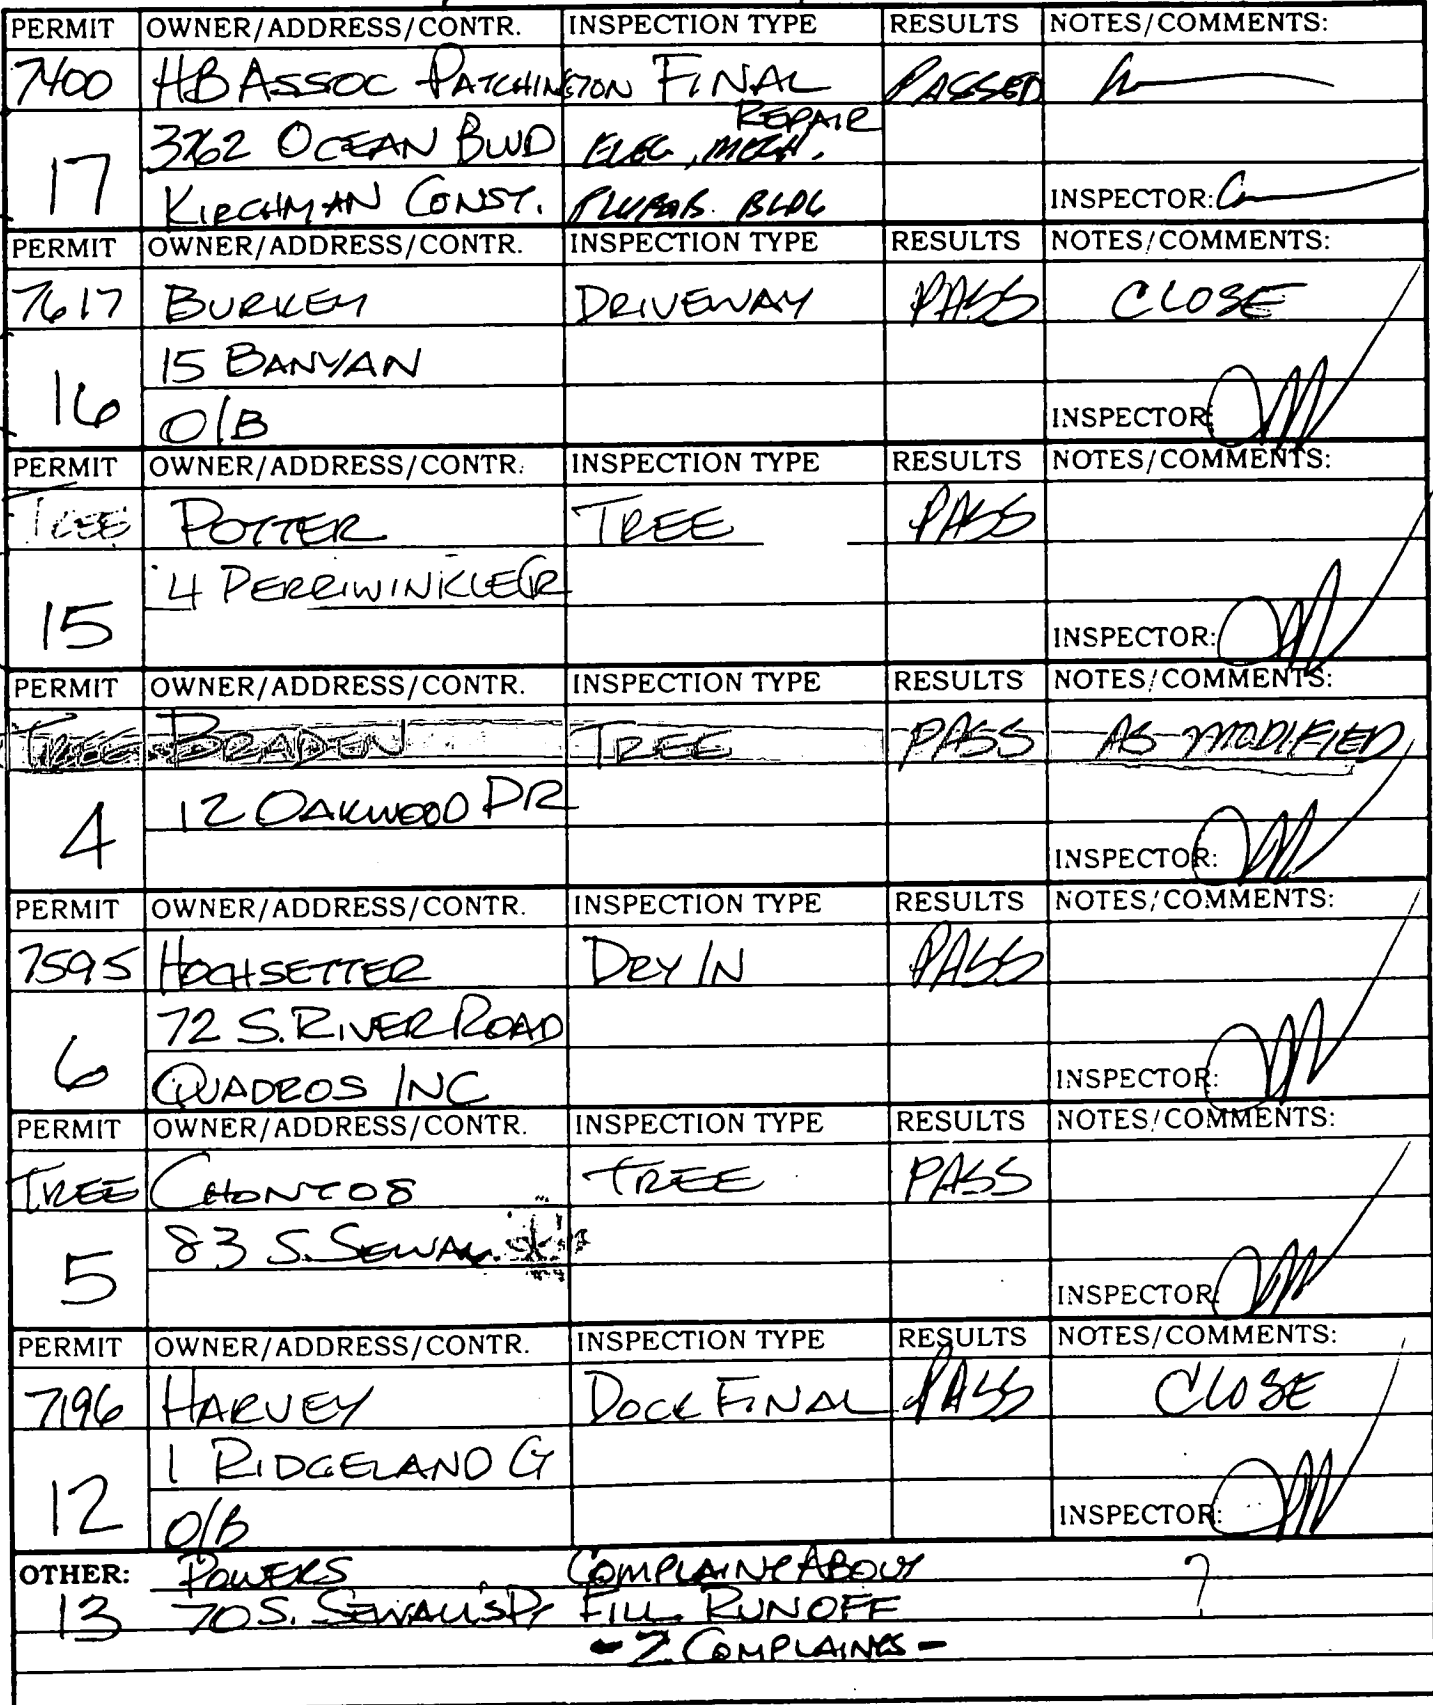 PERMIT OWNER/ADDRESS/CONTR. INSPECTION TYPE RESULTS NOTES/COMMENTS:
7400 HB ASSOC PATCHINGTON FINAL PASSED
REPAIR
3762 OCEAN BLVD ELEC, MECH.
17 KIRCHMAN CONST. PLUMB. BLDG INSPECTOR:
PERMIT OWNER/ADDRESS/CONTR. INSPECTION TYPE RESULTS NOTES/COMMENTS:
7617 BURKEY DRIVEWAY PASS CLOSE
15 BANYAN
16 O/B INSPECTOR:
PERMIT OWNER/ADDRESS/CONTR. INSPECTION TYPE RESULTS NOTES/COMMENTS:
TREE POTTER TREE PASS
4 PERRIWINKLE CR
15 INSPECTOR:
PERMIT OWNER/ADDRESS/CONTR. INSPECTION TYPE RESULTS NOTES/COMMENTS:
TREE BRADEN TREE PASS AS MODIFIED
12 OAKWOOD DR
4 INSPECTOR:
PERMIT OWNER/ADDRESS/CONTR. INSPECTION TYPE RESULTS NOTES/COMMENTS:
7595 HOCHSETTER DRY IN PASS
72 S. RIVER ROAD
6 QUADROS INC INSPECTOR:
PERMIT OWNER/ADDRESS/CONTR. INSPECTION TYPE RESULTS NOTES/COMMENTS:
TREE CHONTOS TREE PASS
83 S. SEWALL
5 INSPECTOR:
PERMIT OWNER/ADDRESS/CONTR. INSPECTION TYPE RESULTS NOTES/COMMENTS:
7196 HARVEY DOCK FINAL PASS CLOSE
1 RIDGELAND CT
12 O/B INSPECTOR:
OTHER: POWERS COMPLAINT ABOUT ?
13 70 S. SEWALL'S PT FILL RUNOFF
- 2 COMPLAINTS -